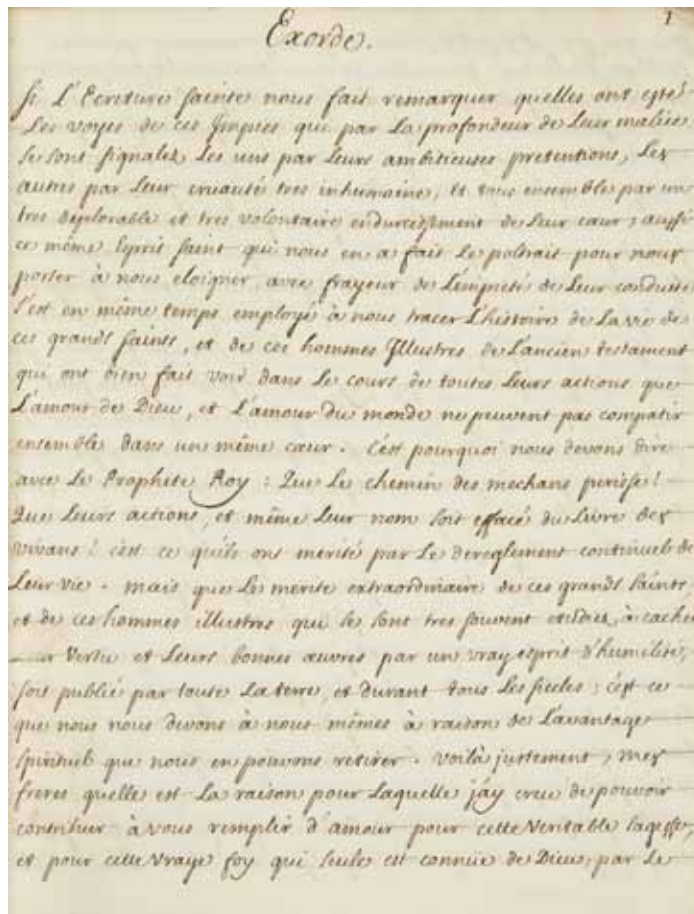 1
Exorde.
Si L'Ecriture sainte nous fait remarquer quelles ont esté
Les voyes de ces Impies qui par La profondeur de Leur malice
se sont signalez Les uns par Leurs ambitieuses pretentions, Les
autres par Leur cruauté tres inhumaine, et tous ensemble par un
tres deplorable et tres volontaire endurcissement de Leur cœur; aussi
ce même Esprit saint qui nous en a fait Le poltrait pour nous
porter à nous eloigner avec frayeur de L'empieté de Leur conduite
s'est en même temps employé à nous tracer L'histoire de La vie de
ces grands saints, et de ces hommes Illustres de L'ancien testament
qui ont bien fait voir dans Le cours de toutes Leurs actions que
L'amour de Dieu, et L'amour du monde ne peuvent pas compatir
ensemble dans un même cœur. C'est pourquoi nous devons dire
avec Le Prophete Roy: Que Le chemin des mechans perisse!
Que Leurs actions, et même Leur nom soit effacé du Livre des
vivans! c'est ce qu'ils ont merité par Le dereglement continuel de
Leur vie. mais que Le merite extraordinaire de ces grands saints
et de ces hommes illustres qui se sont tres souvent etudiés à cacher
vertu et Leurs bonnes œuvres par un vray esprit d'humilité,
soit publié par toute La terre, et durant tous Les siecles; c'est ce
que nous nous devons à nous mêmes à raison de L'avantage
spirituel que nous en pouvons retirer. Voilà justement, mes
freres quelle est La raison pour Laquelle j'ay creu de pouvoir
contribuer à vous remplir d'amour pour cette veritable sagesse,
et pour cette vraye foy qui seule est connüe de Dieu, par Le